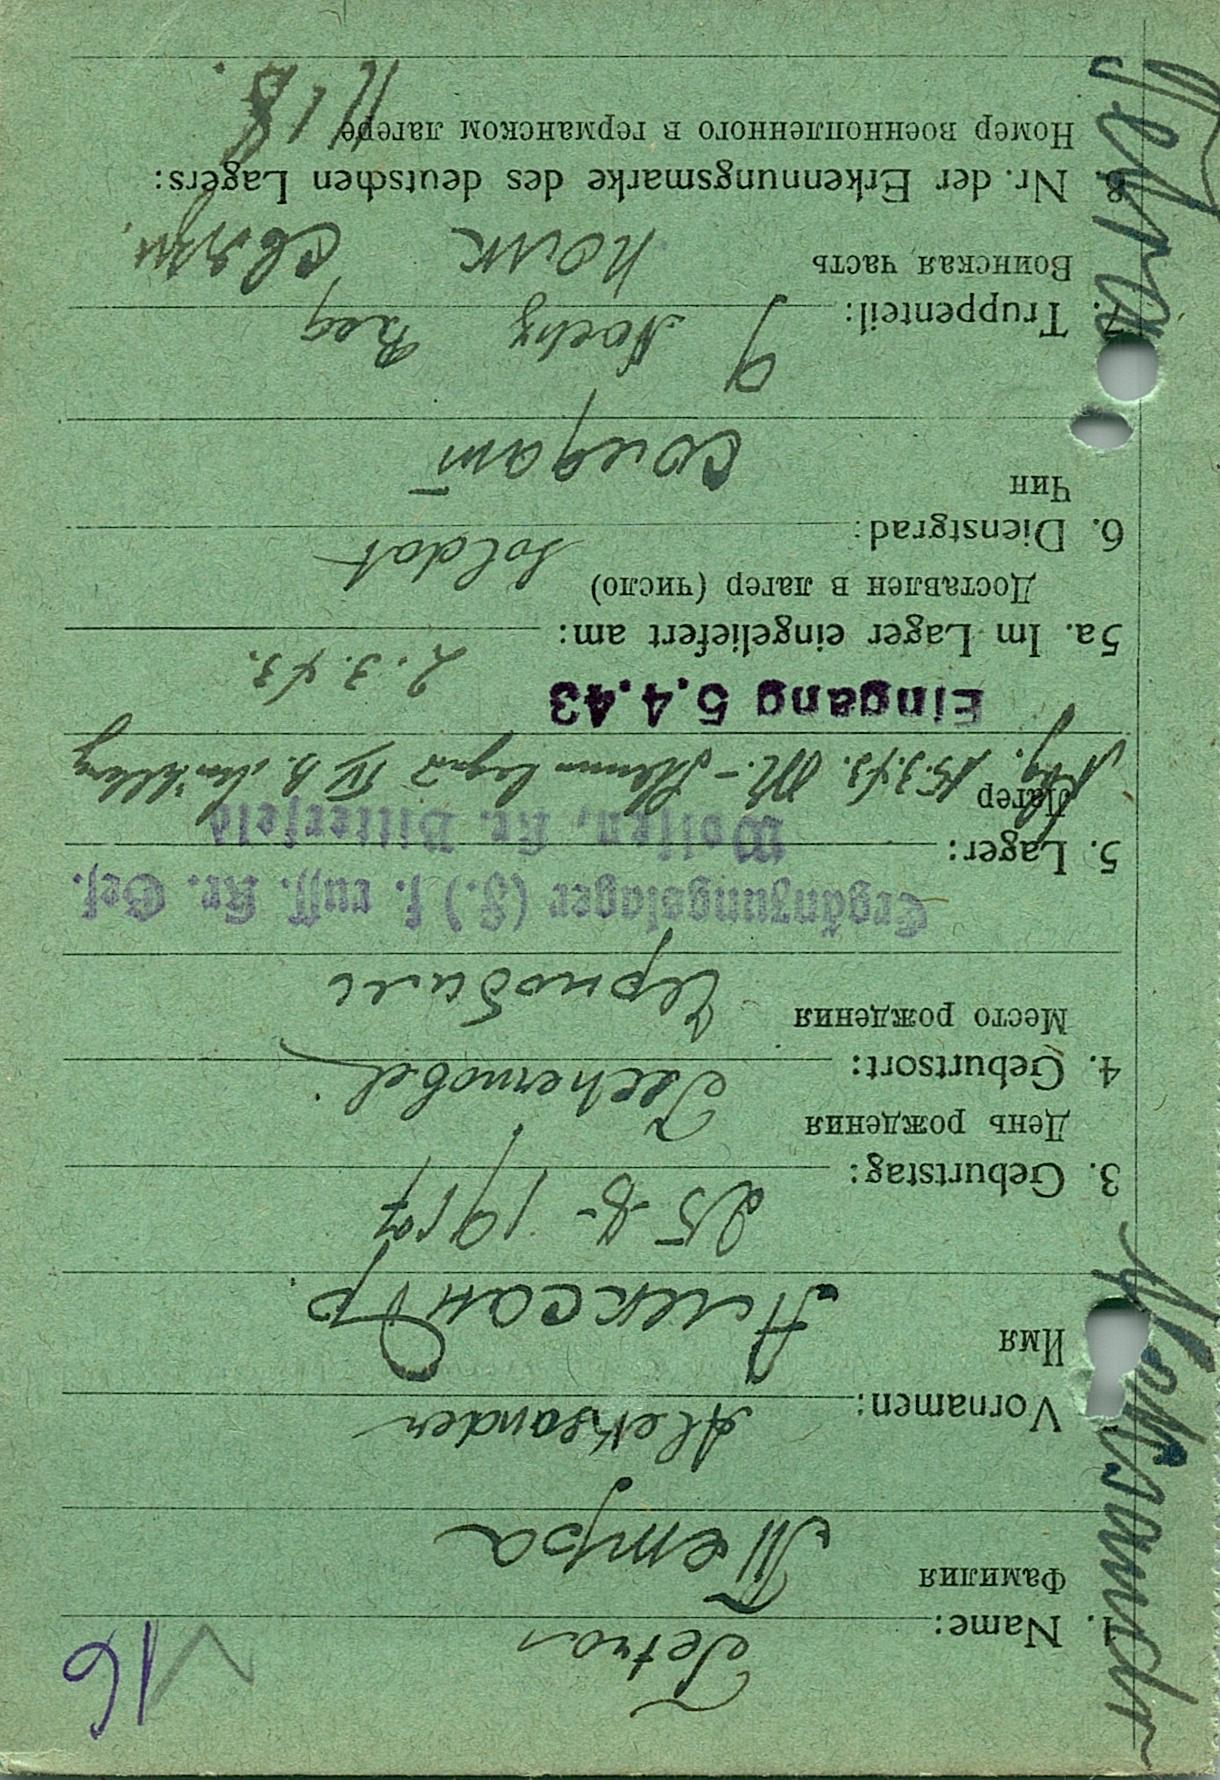 16
1. Name: Tetra
Фамилия Тетра
Vornamen: Aleksander
Имя Александр
3. Geburtstag: 25-8-1917
День рождения
4. Geburtsort: Tschernobel
Место рождения Чернобиль
Ergänzungslager (F.) f. russ. Kr. Gef.
5. Lager: Wolfen, Kr. Bitterfeld
Лагер
15.3.43. M.-Stammlager IV B. Mühlberg
Eingang 5.4.43
5a. Im Lager eingeliefert am: 2.3.43.
Доставлен в лагер (число)
6. Dienstgrad: Soldat
Чин Солдат
7. Truppenteil: 9 Reg
Воинская часть полк связи.
8. Nr. der Erkennungsmarke des deutschen Lagers:
Номер военнопленного в германском лагере
Tetra Aleksandr